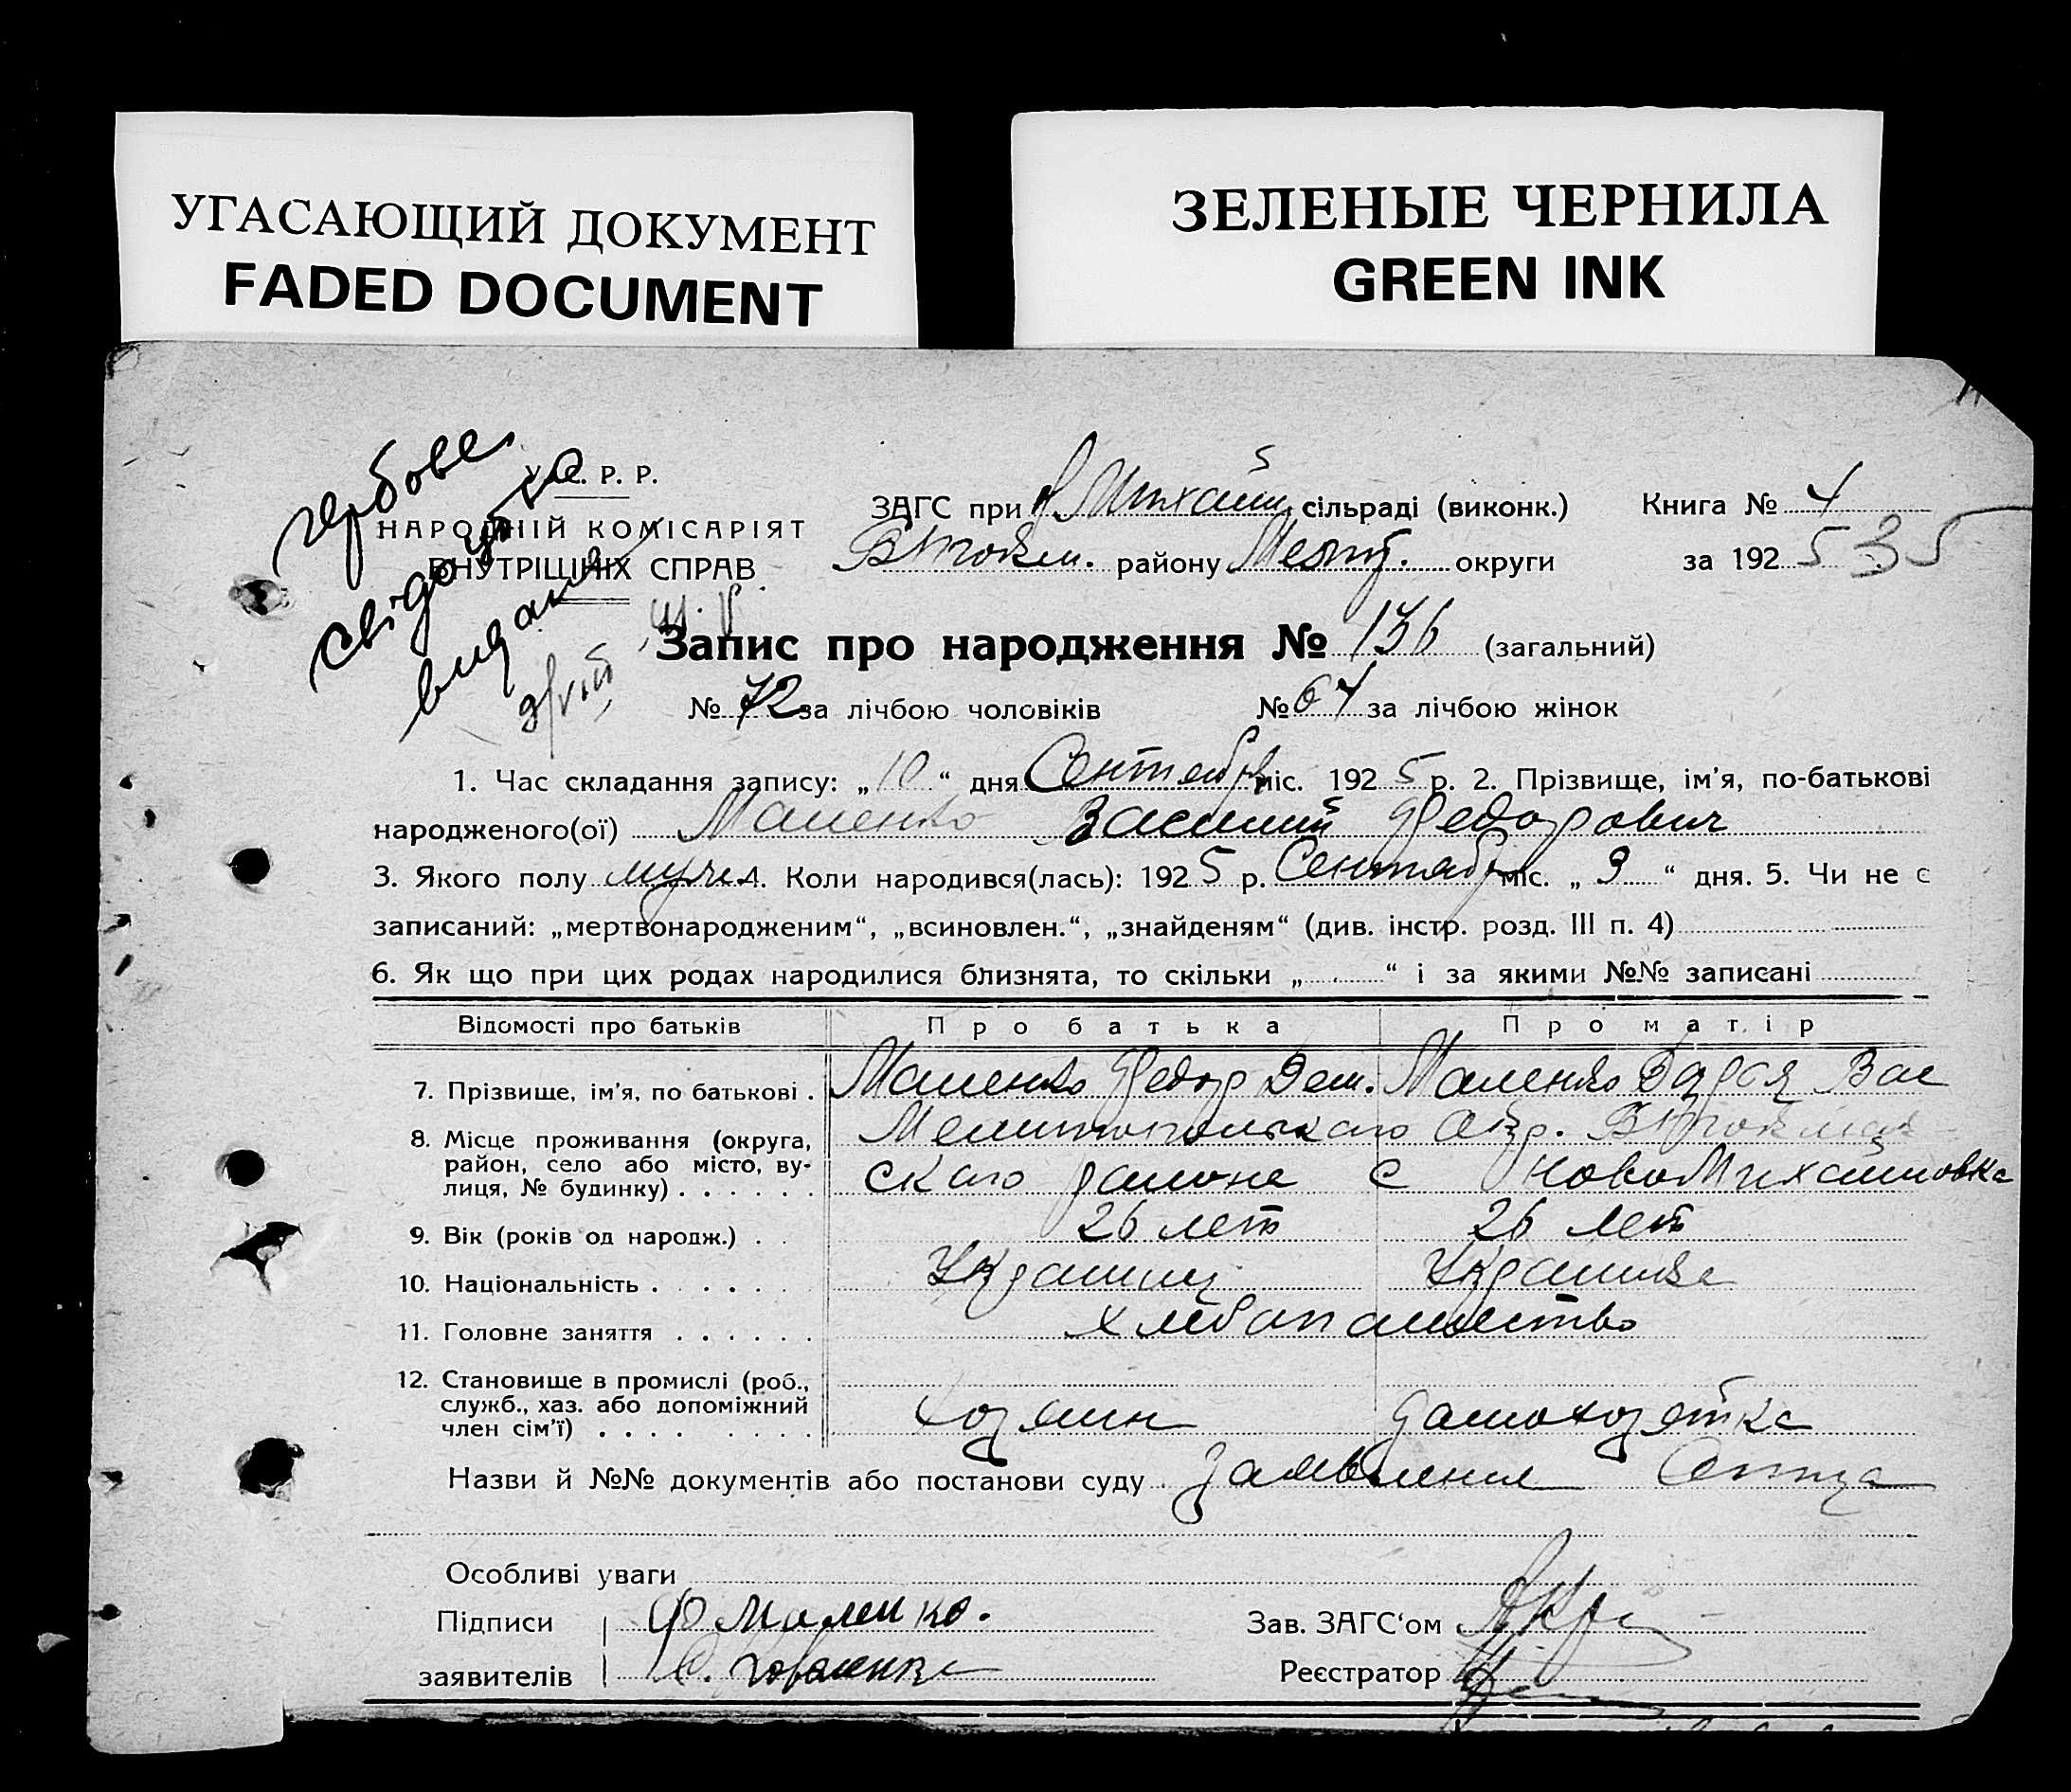 УГАСАЮЩИЙ ДОКУМЕНТ
FADED DOCUMENT
ЗЕЛЕНЫЕ ЧЕРНИЛА
GREEN INK
гербове
свідоцтво
видано
У.С.Р.Р.
НАРОДНІЙ КОМІСАРІЯТ
ВНУТРІШНІХ СПРАВ
ЗАГС при Михайл. сільраді (виконк.) Книга № 4
району Меліт. округи за 1925 35
Запис про народження № 136 (загальний)
№ 72 за лічбою чоловіків № 64 за лічбою жінок
1. Час складання запису: „10“ дня Сентября міс. 1925 р. 2. Прізвище, ім'я, по-батькові
народженого(ої) Маленко Василий Федорович
3. Якого полу мужс. 4. Коли народився(лась): 1925 р. Сентябр міс. „9“ дня. 5. Чи не є
записаний: „мертвонародженим“, „всиновлен.“, „знайденям“ (див. інстр. розд. III п. 4)
6. Як що при цих родах народилися близнята, то скільки „ “ і за якими №№ записані
Відомості про батьків Про батька Про матір
7. Прізвище, ім'я, по батькові . Маленко Федор Дем. Маленко Дарья Вас
8. Місце проживання (округа, район, село або місто, вулиця, № будинку) . . . . . . Мелитопольскаго Окр.
скаго района с НовоМихайловка
9. Вік (років од народж.) . . 26 лет 26 лет
10. Національність . . . . . Украинец Украинка
11. Головне заняття . . . . . . хлебопашество
12. Становище в промислі (роб., служб., хаз. або допоміжний член сім'ї) . . . . . . . . хозяин домохозяйка
Назви й №№ документів або постанови суду . Заявление Отца
Особливі уваги
Підписи Ф Маленко. Зав. ЗАГС'ом
заявителів Коваленко Реєстратор